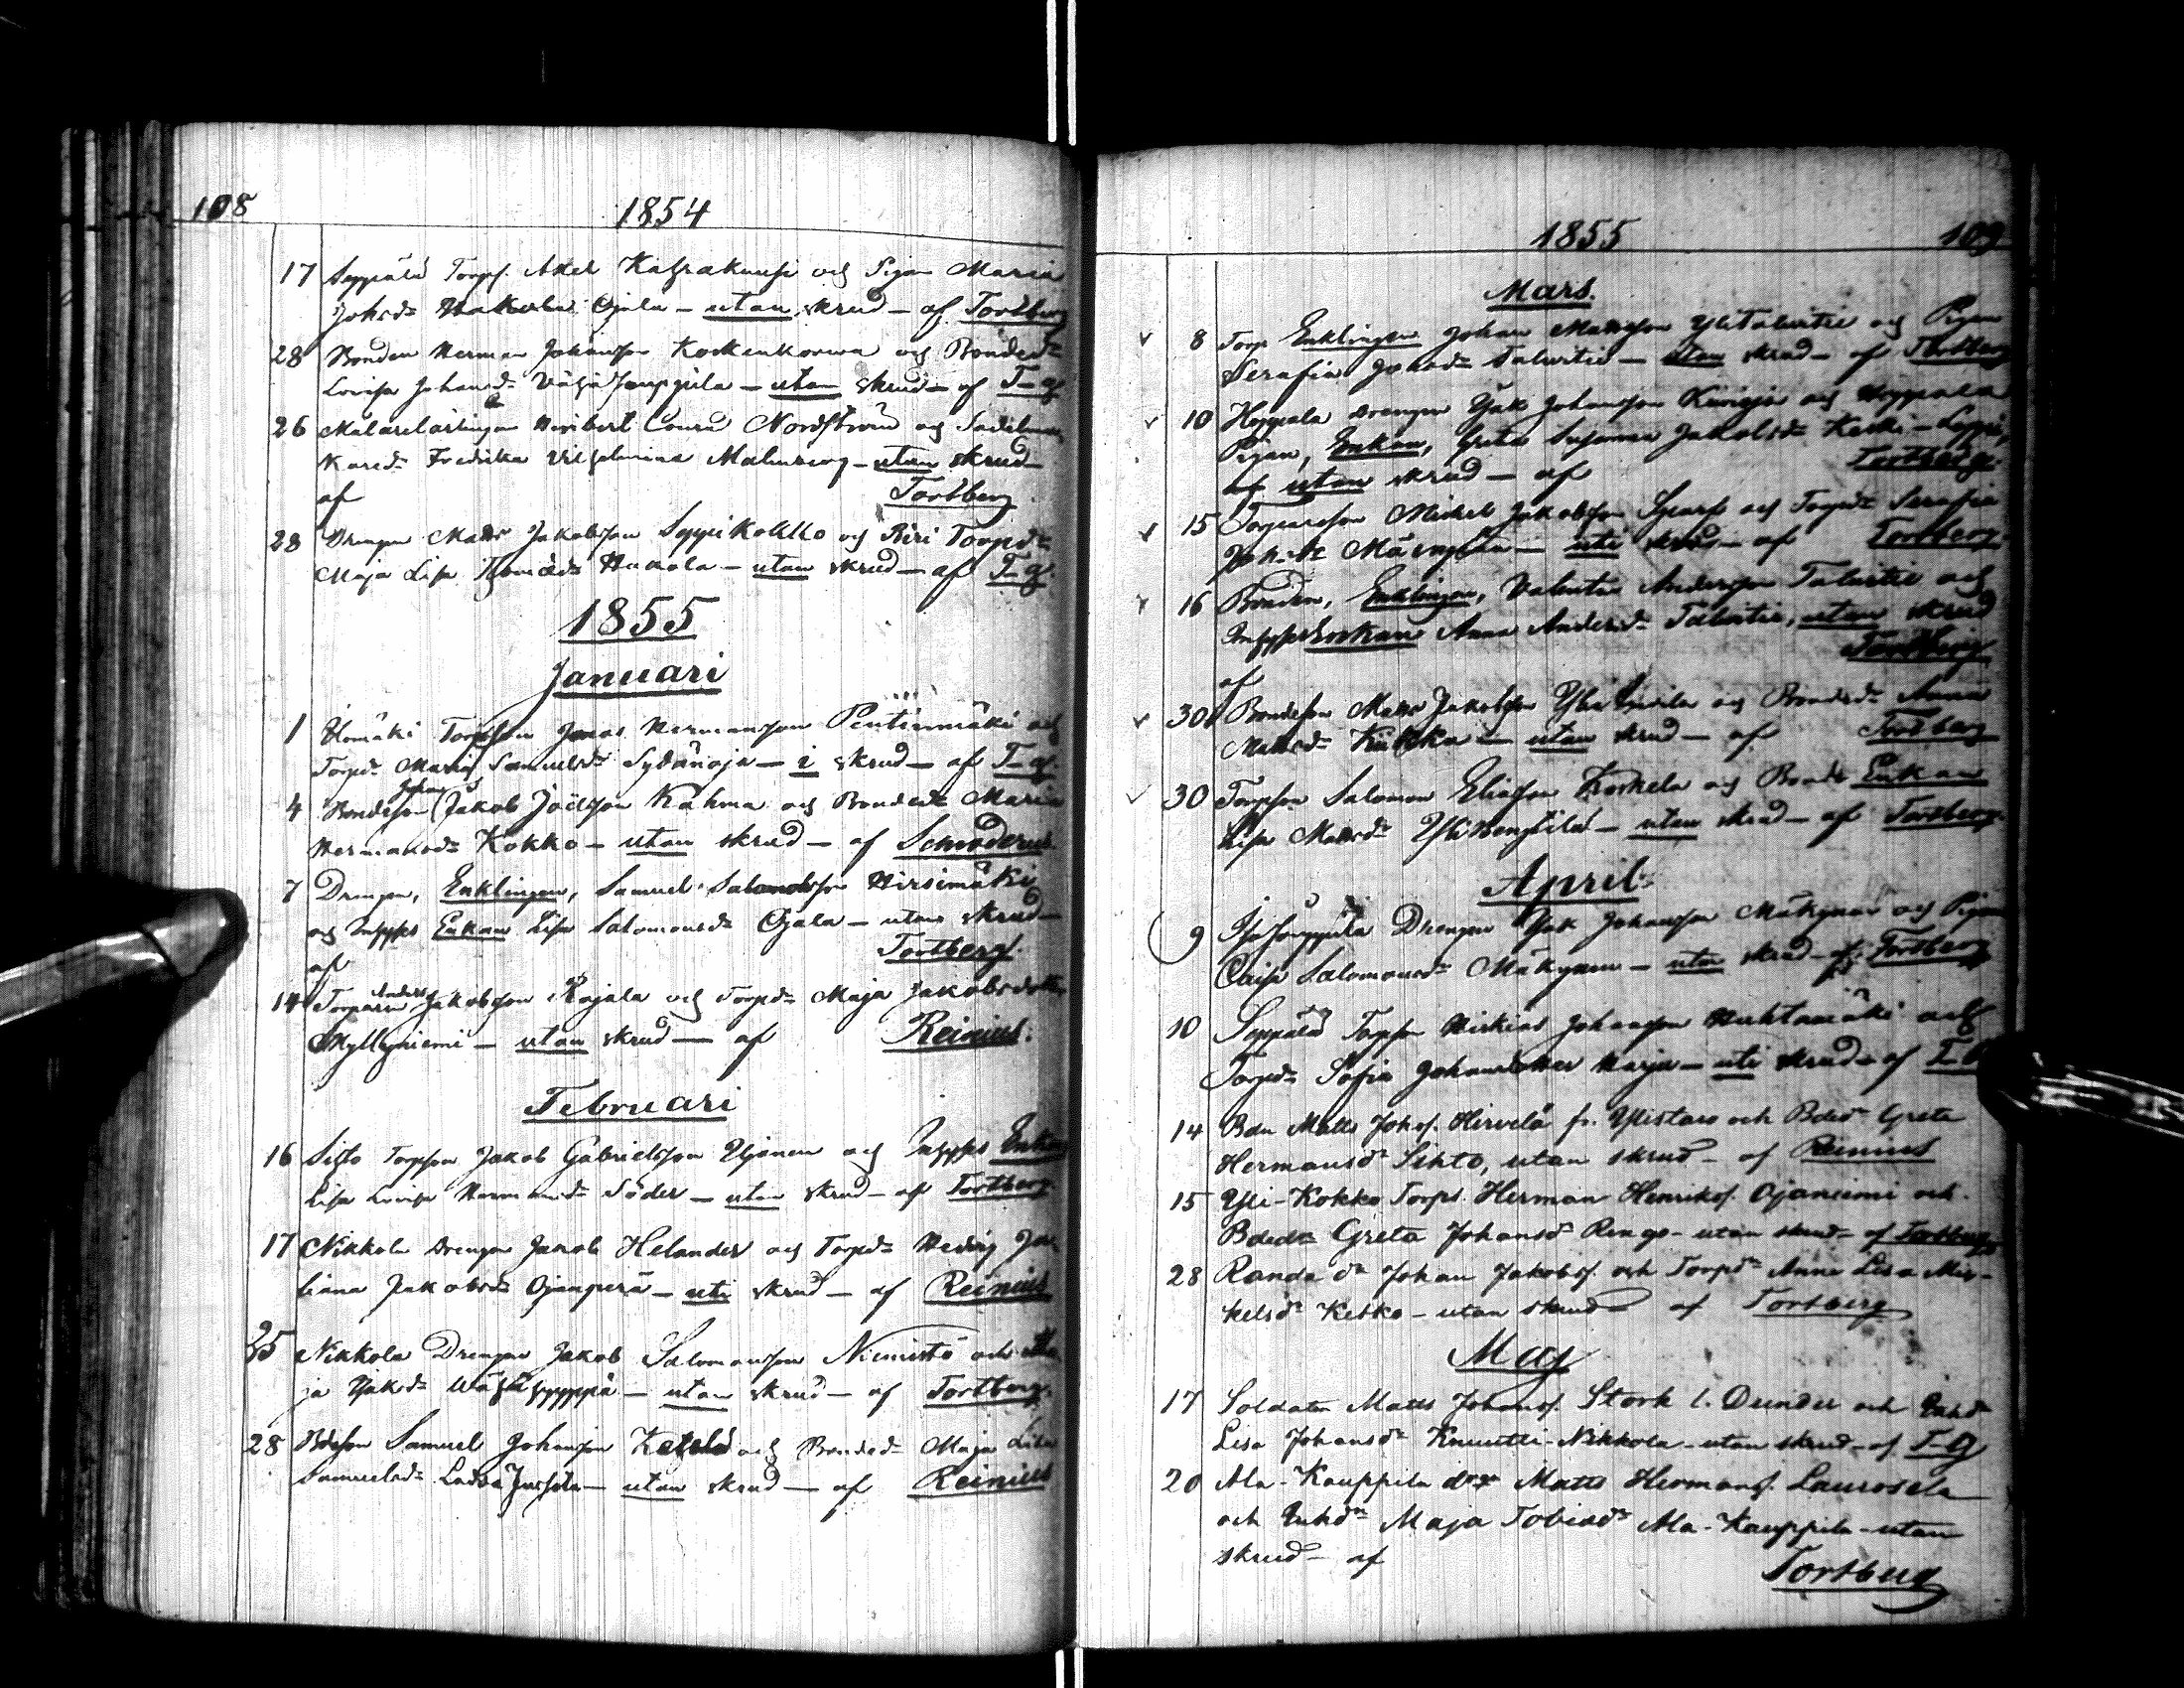 108
1854
17 Seppälä Torps. Axel Katrakuusi och Pigan Maria
Johsd. Ojala – utan skrud – af Tortberg
28 Bonden Herman Johansson Koskenkorwa och Bonded.
Lovisa Johansd. Vähä Jouppila – utan skrud – af T–g
26 Målarelärlingen Heribert Conrad Nordström och
Fredrika Vilhelmina Malmberg – utan skrud
af Tortberg
28 Drengen Matts Jakobsson Seppikohko och Torpd.
Maja Lisa Hakola – utan skrud – af T–g
1855
Januari
1 Torpson Jonas Hermansson Pentinmäki och
Torpd. Maria Samuelsd. Sydänoja – i skrud – af T–g
4 Bondeson Johan (Jakob Joelsson Kahma och Bonded. Maria
Hermansd. Kokko – utan skrud – af Schroderus
7 Drengen, Enklingen, Samuel Salomonsson Hirsimäki
och Inhyses Enkan Lisa Salomonsd. Ojala – utan skrud –
af Tortberg
14 Torparen Anders Jakobsson Rajala och Torpd. Maja Jakobsdotter
Myllyniemi – utan skrud – af Reinius.
Februari
16 Torpson Jakob Gabrielsson och Inhyses Enkan
Lisa Lovisa Hermansd. Söder – utan skrud – af Tortberg
17 Nikkola Drengen Jakob Helander och Torpd. Hedvig Ju-
liana Jakobsd. Ojanperä – uti skrud – af Reinius
25 Nikkola Drengen Jakob Salomonsson Niemistö och Ma-
ja Jaksd. – utan skrud – af Tortberg
28 Bdeson Samuel Johansson Ketola och Bonded. Maja Lisa
Samuelsd. Jussila – utan skrud – af Reinius
1855
109
Mars.
8 Torp Enklingen Johan Mattsson Ylitalvitie och Pigan
Serafia Johsd. Talvitie – utan skrud – af Tortberg
10 Drengen Jak Johansson och
Pigan, Enkan, Greta Susanna Jakobsd. Keski-
af utan skrud – af Tortberg.
15 Torparesson Michel Jakobsson och Torpd. Serafia
– uti skrud – af Tortberg
16 Bonden, Enklingen, Valentin Andersson Talvitie och
Anna Andersd. Talvitie, utan skrud
af Tortberg
30 Bondeson Matts Jakobsson och Bonded. Anna
Mattsd. – utan skrud – af Tortberg
30 Torpson Salomon Eliasson Koskela och Bonde Enkan
Lisa Mattsd. – utan skrud – af Tortberg.
April
9 Drengen Jak Johansson Mäkynen och Pigan
Caisa Salomonsd. Mäkynen – utan skrud – af Tortberg
10 Seppälä Torpson Hiskias Johansson Huhtamäki och
Torpd. Sofia Johansdotter Harju – uti skrud – af
14 Bdn Matts Johss. Hirvelä fr. Ylistaro och Bded. Greta
Hermansd. Sihto, utan skrud – af Reinius
15 Yli-Kokko Torps. Herman Henrikss. Ojaniemi och
Bded. Greta Johansd. Rengo – utan skrud – af Tortberg
28 Randa dr. Johan Jakobss. och Torpd. Anna Lisa Mic-
kelsd. Ketko – utan skrud – af Tortberg
Maj
17 Soldaten Matts Johanss. Stork l. Dunder och Inhd.
Lisa Johansd. Knuutti-Nikkola – utan skrud – af T–g
20 Ala-Kauppila drg Matts Hermanss. Laurosela
och Inhd. Maja Tobiasd. Ala-Kauppila – utan
skrud – af Tortberg